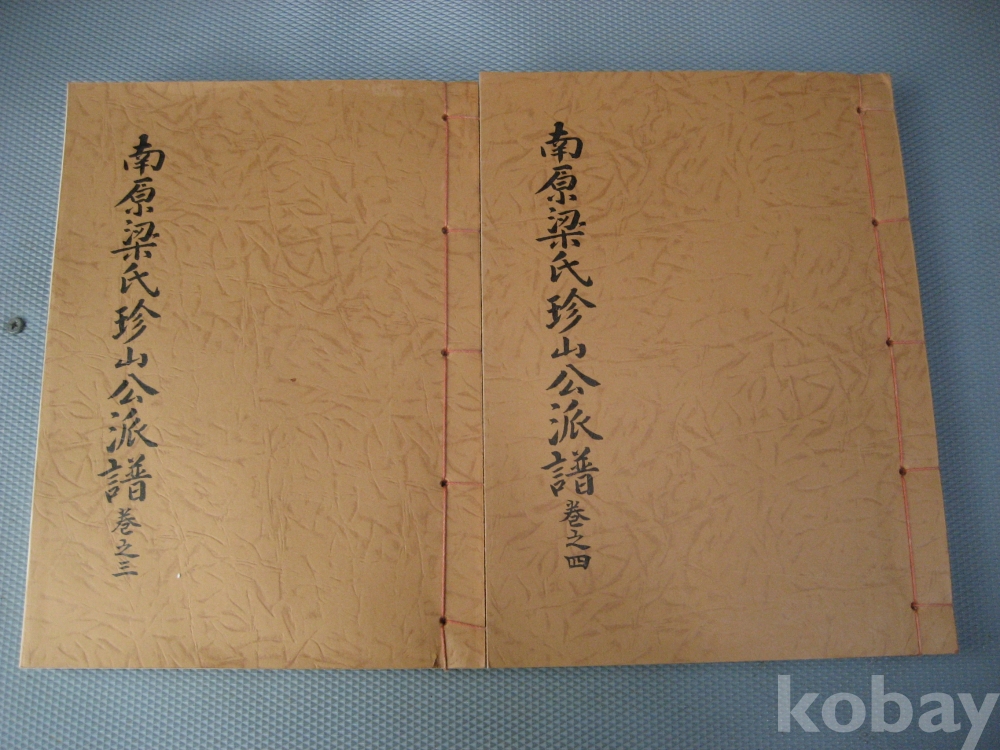 南原梁氏珍山公派譜 卷之三
南原梁氏珍山公派譜 卷之四
kobay